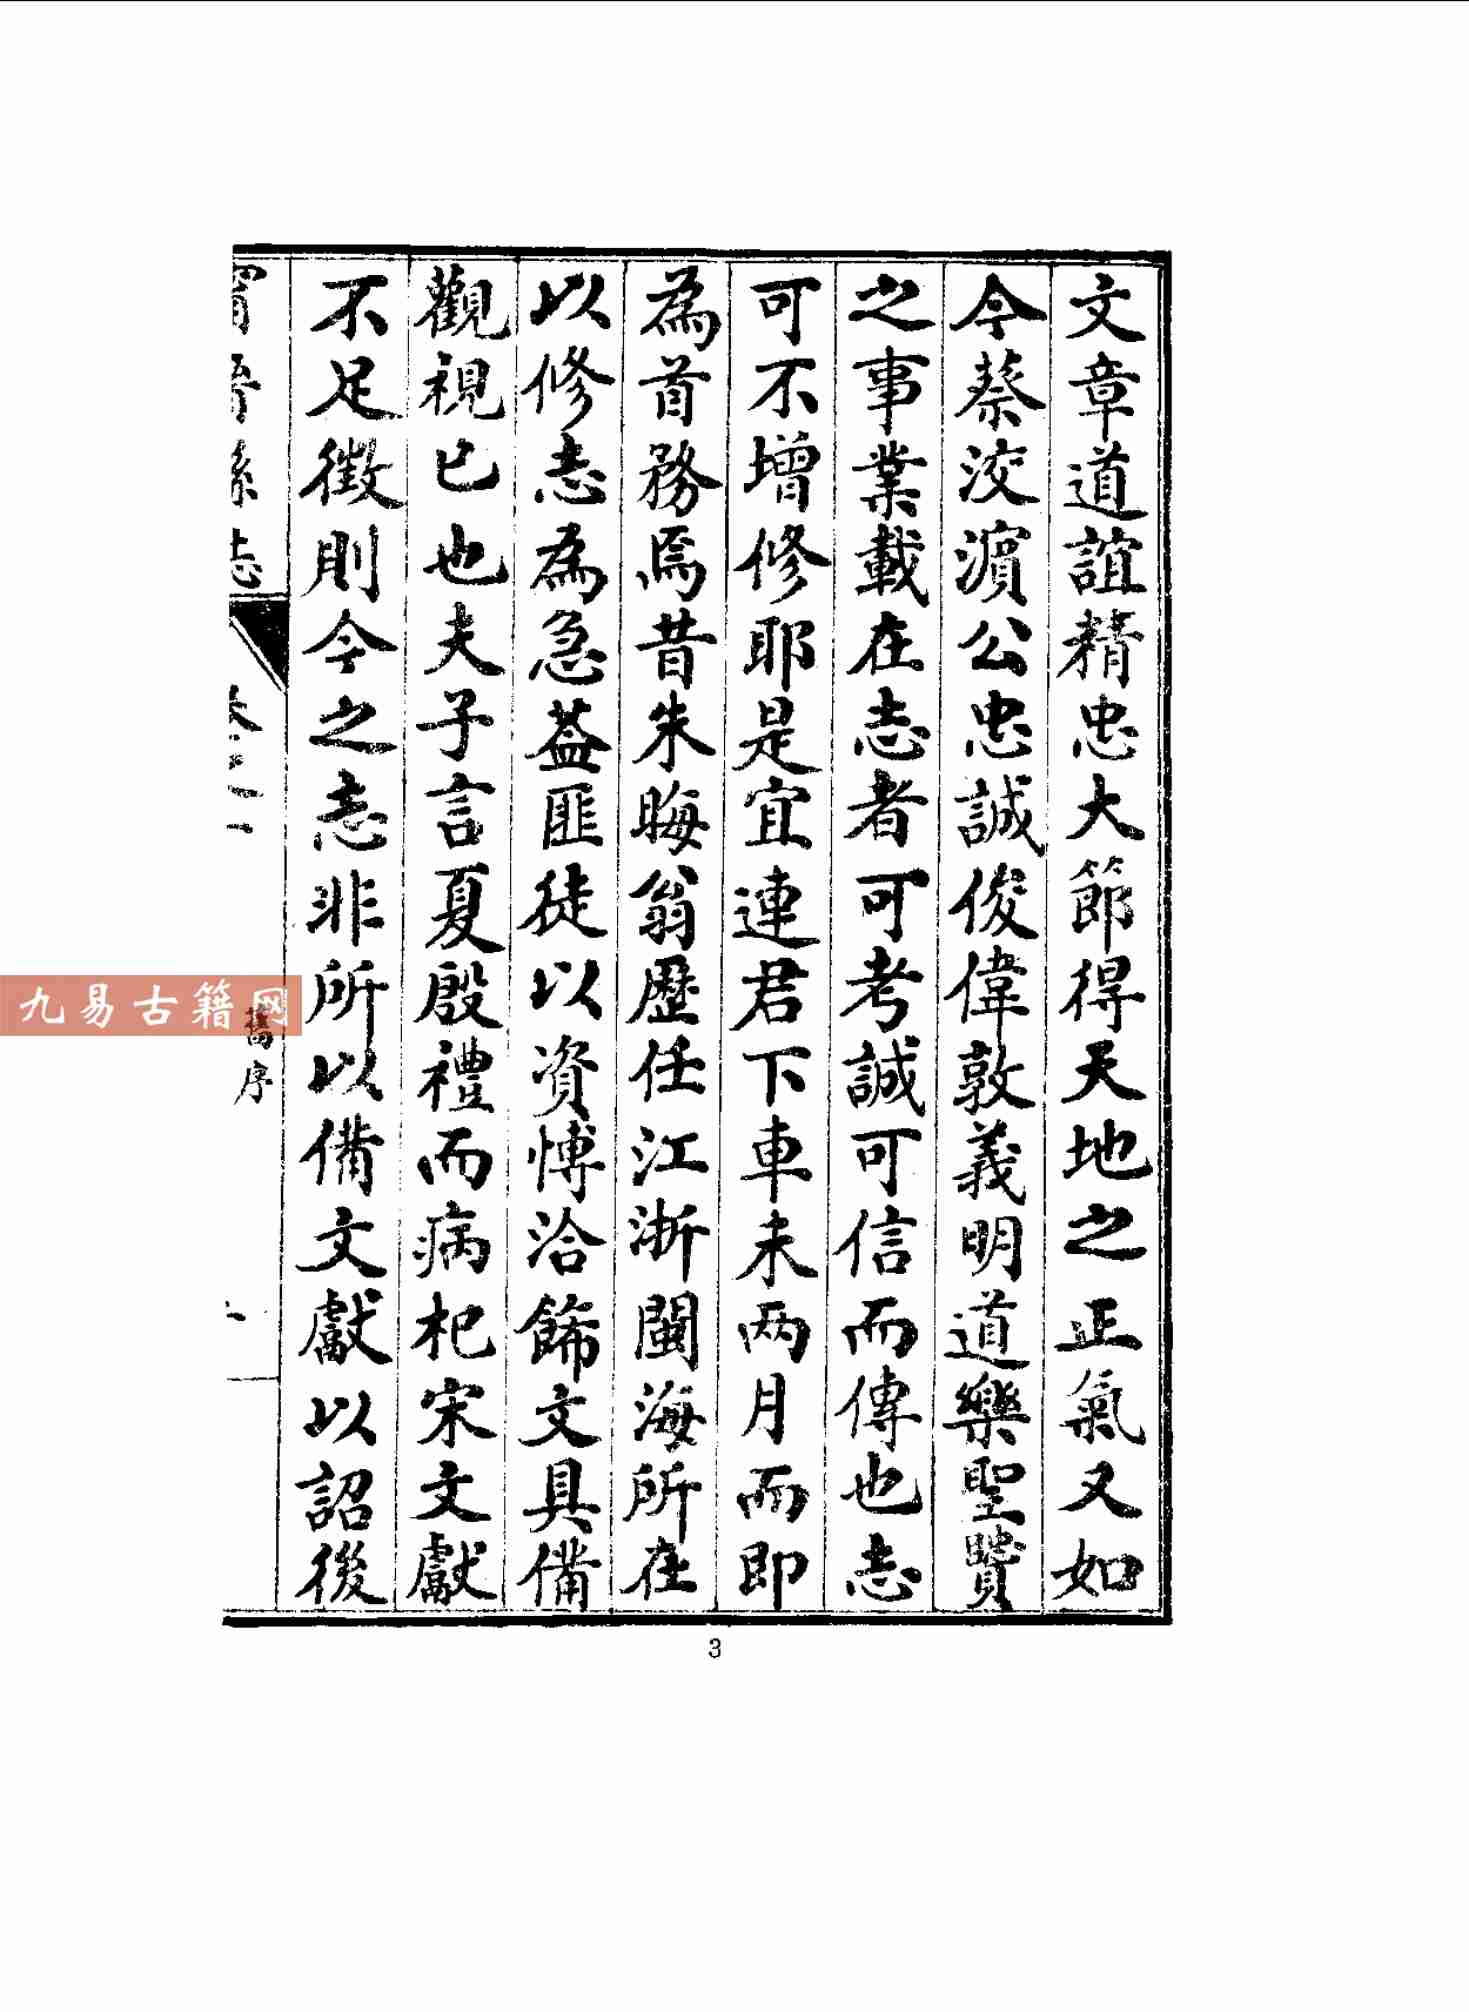 文章道誼精忠大節得天地之正氣又如
今蔡洨濵公忠誠俊偉敦義明道樂聖賢
之事業載在志者可考誠可信而傳也志
可不增修耶是宜連君下車未兩月而即
為首務焉昔朱晦翁歷任江浙閩海所在
以修志為急葢匪徒以資博洽飾文具備
觀視已也夫子言夏殷禮而病杞宋文獻
不足徵則今之志非所以備文獻以詔後
甯晉縣志
卷之一
舊序
九易古籍网
3